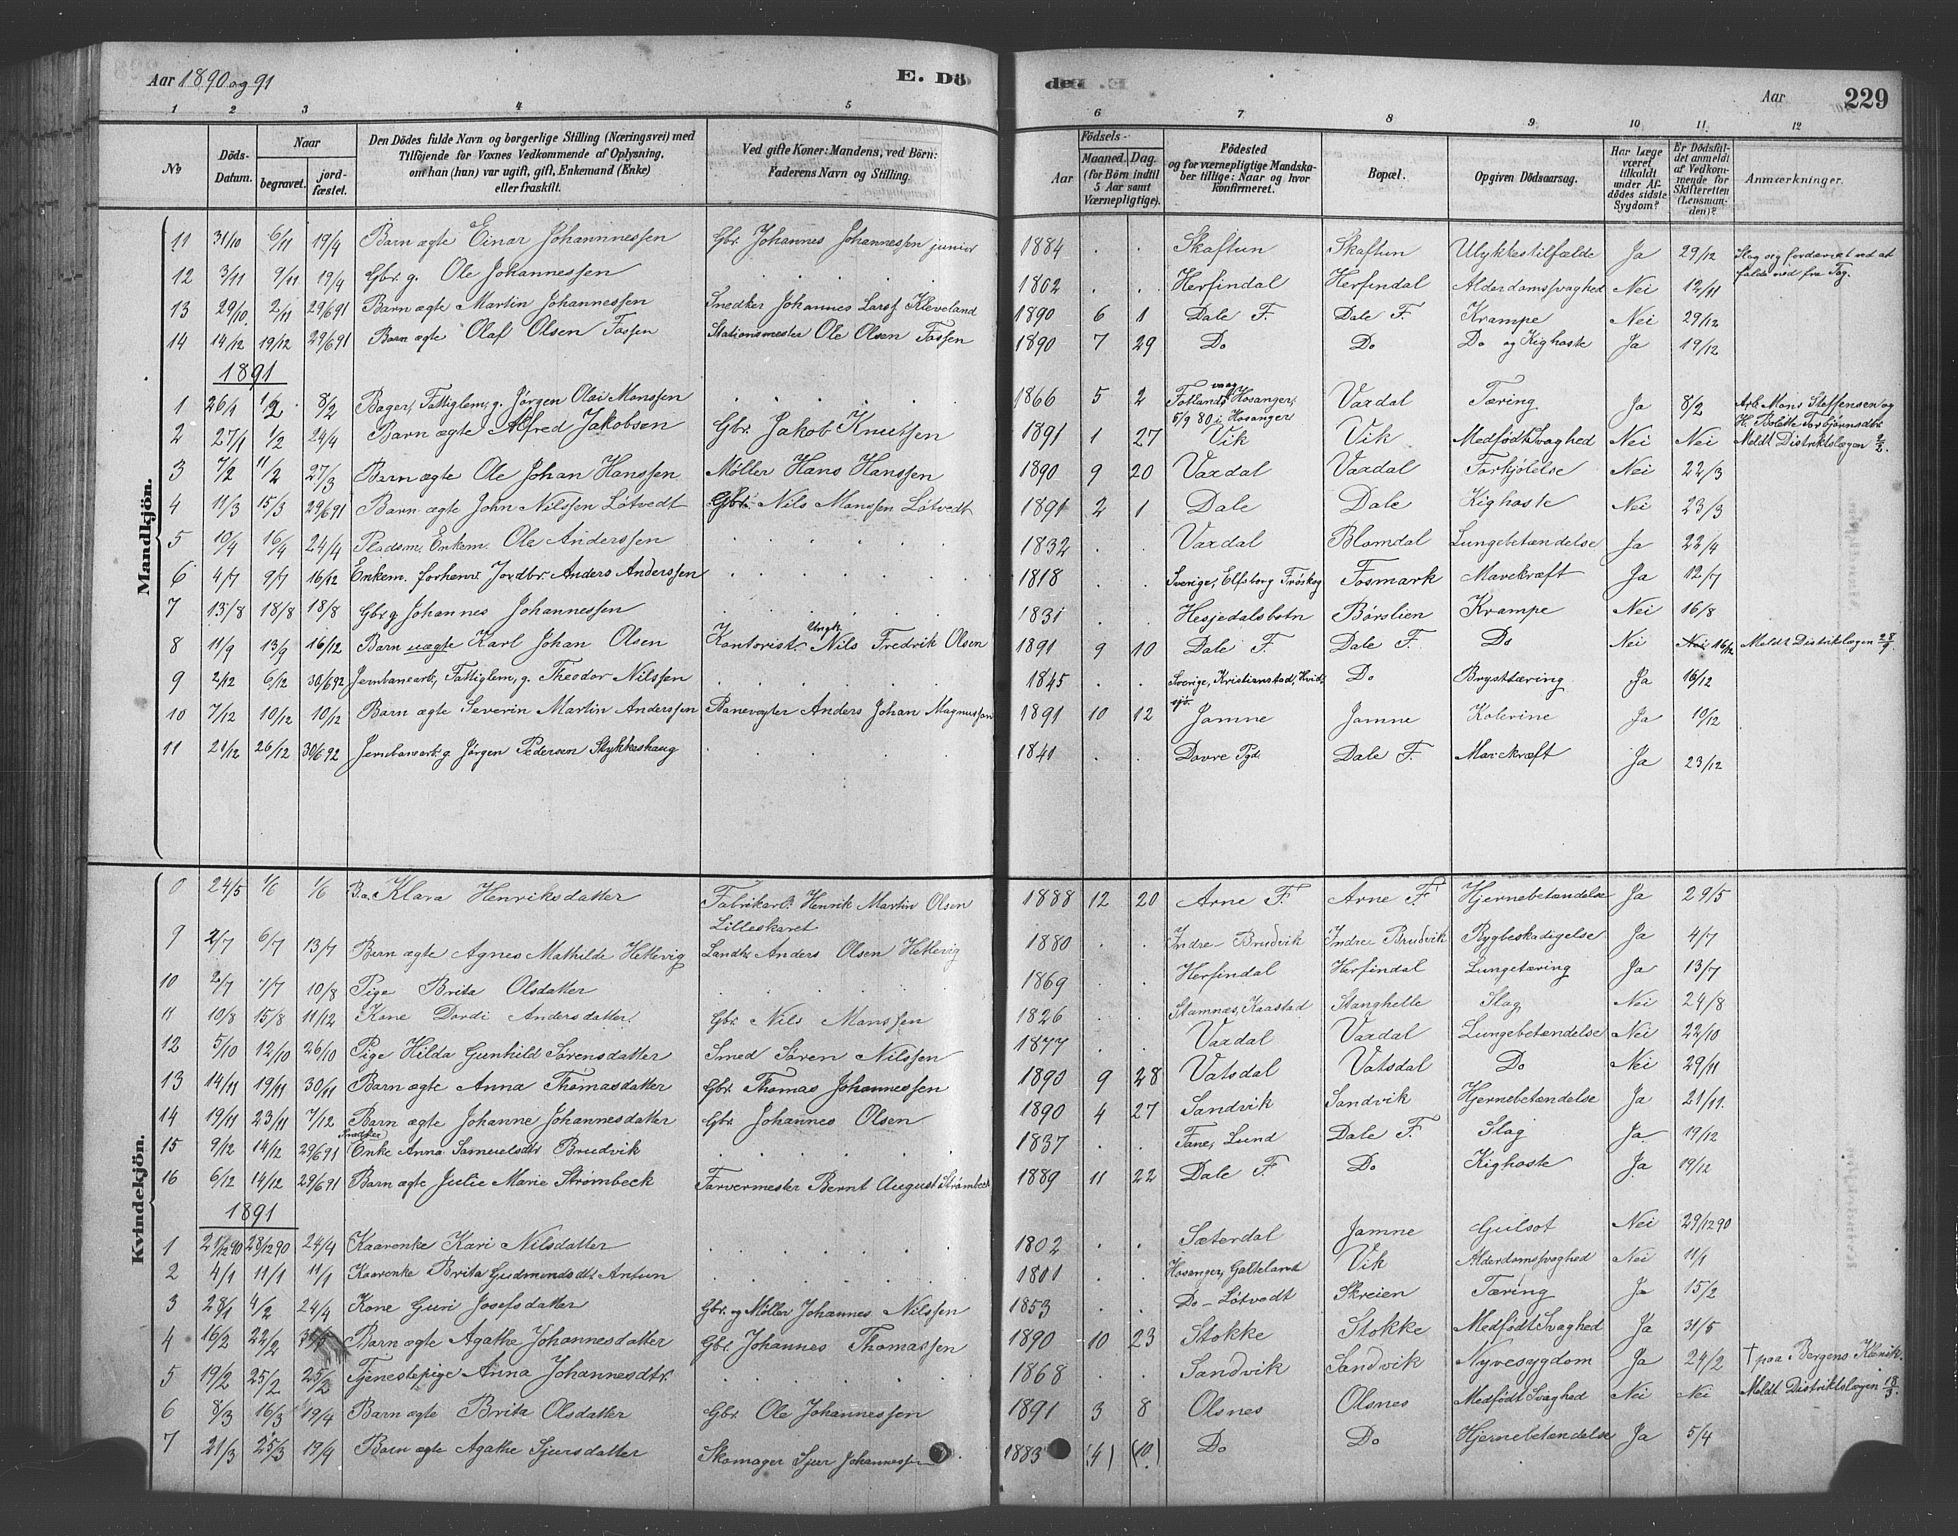 Aar 1890 og 91 E. Dö
den E. Aar 229
1 2 3 4 5 6 7 8 9 10 11 12
No Döds-Datum. Naar begravet. jordfæstet. Den Dödes fulde Navn og borgerlige Stilling (Næringsvei) med Tilföjende for Voxnes Vedkommende af Oplysning, om han (hun) var ugift, gift, Enkemand (Enke) eller fraskilt. Ved gifte Koner: Mandens, ved Börn: Faderens Navn og Stilling. Födsels- Aar Maaned. Dag. (for Börn indtil 5 Aar samt Værnepligtige). Födested og for værnepligtige Mandskaber tillige: Naar og hvor konfirmeret. Bopæl. Opgiven Dödsaarsag. Har Læge været tilkaldt under Afdödes sidste Sygdom? Er Dödsfaldet anmeldt af Vedkommende for Skifteretten (Lensmanden)? Anmærkninger.
Mandkjön.
11 31/10 6/11 19/4 Barn ægte Einar Johannessen Gbr. Johannes Johannessen junior 1884 . . Skaftun Skaftun Ulykkestilfælde Ja 29/12 Slog sig fordærvet ved at falde ned fra Tag.
12 3/11 9/11 19/4 Gbr. g. Ole Johannessen . . . . 1802 . . Herfindal Herfindal Alderdomssvaghed Nei 12/11
13 29/10. 2/11 29/6 91 Barn ægte Martin Johannessen Snedker Johannes Larss. Kleveland 1890 6 1 Dale F. Dale F. Krampe Nei 29/12
14 14/12 19/12 29/6 91 Barn ægte Olaf Olsen Fossen Stationsmester Ole Olsen Fossen 1890 7 29 Do Do Do og Kighoste Ja 19/12
1891
1 26/1 1/2 8/2 Bager, Fattiglem, g. Jørgen Olai Monssen . . . . 1866 5 2 Fotlandsvaag Hosanger, 5/9 80 i Hosanger Vaxdal Tæring Ja 8/2 Arb. Mons Steffensen og H. Bolette Torbjørnsdtr.
2 27/1 1/2 24/4 Barn ægte Alfred Jakobsen Gbr. Jakob Knutsen 1891 1 27 Vik Vik Medfødt Svaghed Nei Nei Meldt Distriktslægen 2/2.
3 7/2 11/2 27/3 Barn ægte Ole Johan Hanssen Møller Hans Hanssen 1890 9 20 Vaxdal Vaxdal Forkjølelse Nei 22/3
4 11/3 15/3 29/6 91 Barn ægte John Nilssen Løtvedt Gbr. Nils Monssen Løtvedt 1891 2 1 Dale Dale Kighoste Nei 23/3
5 10/4 16/4 24/4 Pladsm. Enkem. Ole Anderssen . . . . 1832 . . Vaxdal Blomdal Lungebetændelse Ja 22/4
6 4/7 9/7 16/12 Enkem. forhenv. Jordbr. Anders Anderssen . . . . 1818 . . Sverige, Elfsborg Fröskog Fosmark Mavekræft Ja 12/7
7 13/8 18/8 18/8 Gbr g Johannes Johannessen . . . . 1831 . . Hesjedalsbotn Børslien Krampe Nei 16/8
8 11/9 13/9 16/12 Barn uægte Karl Johan Olsen Kontorist Ungk. Nils Fredrik Olsen 1891 9 10 Dale F. Dale F. Do Nei Nei 16/12 Meldt Distriktslægen 28/9.
9 2/12 6/12 30/6 92 Jernbanearb., Fattiglem, g. Theodor Nilssen . . . . 1845 . . Sverige, Kristianstad, Hvidsjö. Do Brysttæring Ja 16/12
10 7/12 10/12 10/12 Barn ægte Severin Martin Anderssen Banevogter Anders Johan Magnussen 1891 10 12 Jamne Jamne Kolerine Ja 10/12
11 21/12 26/12 30/6 92 Jernbanearb. g. Jørgen Pedersen Stykkeshaug . . . . 1841 . . Dovre Pgd. Dale F. Mavekræft Ja 23/12
Kvindekjön.
0 24/5 1/6 1/6 B. æ. Klara Henriksdatter Fabrikarb. Henrik Martin Olsen Lilleskaret 1888 12 20 Arne F. Arne F. Hjernebetændelse Ja 29/5
9 2/7 6/7 13/7 Barn ægte Agnes Mathilde Hetlevig Landh. Anders Olsen Hetlevig 1880 . . Indre Brudvik Indre Brudvik Rygbeskadigelse Ja 4/7
10 2/7 7/7 10/8 Pige Brita Olsdatter . . . . 1869 . . Herfindal Herfindal Lungetæring Ja 13/7
11 10/8 15/8 11/12 Kone Dordi Andersdatter. Gbr. Nils Monssen 1826 . . Stamnes, Kaastad Stanghelle Slag Nei 24/8
12 5/10 12/10 26/10 Pige Hilda Gunhild Sørensdatter Smed Søren Nilssen 1877 . . Vaxdal Vaxdal Lungebetændelse Nei 22/10
13 14/11 19/11 30/11 Barn ægte Anna Thomasdatter Gbr. Thomas Johannessen 1890 9 28 Vatsdal Vatsdal Do Nei 29/11
14 19/11 23/11 7/12 Barn ægte Johanne Johannesdatter Gbr. Johannes Olsen 1890 4 27 Sandvik Sandvik Hjernebetændelse Ja 21/11.
15 9/12 14/12 29/6 91 Snedker Enke Anna Samuelsdtr Brudvik . . . . 1837 . . Fane, Lund Dale F. Slag Ja 19/12
16 6/12 14/12 29/6 91 Barn ægte Julie Marie Strømbeck Farvermester Bernt August Strømbeck 1889 11 22 Dale F Do Kighoste Ja 19/12
1891
1 21/12 90 28/12 90 24/4 Kaarenke Kari Nilsdatter . . . . 1802 . . Sæterdal Jamne Gulsot Nei 29/12 90
2 4/1 11/1 11/1 Kaarenke Brita Gudmundsdtr Antun . . . . 1801 . . Hosanger, Galteland Vik Alderdomssvaghed Nei 11/1
3 28/1 4/2 24/4 Kone Guri Josefsdatter Gbr. og Møller Johannes Nilssen 1853 . . Do - Løtvedt Skreien Tæring Ja 15/2
4 16/2 22/2 Barn ægte Agathe Johannesdatter Gbr. Johannes Thomassen 1890 10 23 Stokke Stokke Medfødt Svaghed Ja 31/5
5 19/2 25/2 25/2 Tjenestepige Anna Johannesdtr. . . . . 1868 . . Sandvik Sandvik Nyresygdom Ja 24/2 † paa Bergens Klinik.
6 8/3 16/3 19/4 Barn ægte Brita Olsdatter Gbr. Ole Johannessen 1891 3 8 Olsnes Olsnes Medfødt Svaghed Nei Nei Meldt Distriktslægen 18/3.
7 21/3 25/3 19/4 Barn ægte Agathe Sjursdatter Skomager Sjur Johannessen 1883 (4) (10) Do Do Hjernebetændelse Ja 5/4